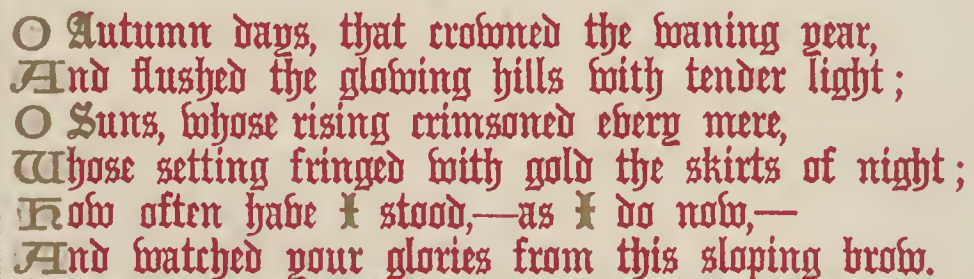 O Autumn days, that crowned the waning year,
And flushed the glowing hills with tender light;
O Suns, whose rising crimsoned every mere,
Whose setting fringed with gold the skirts of night;
How often have I stood,—as I do now,—
And watched your glories from this sloping brow.